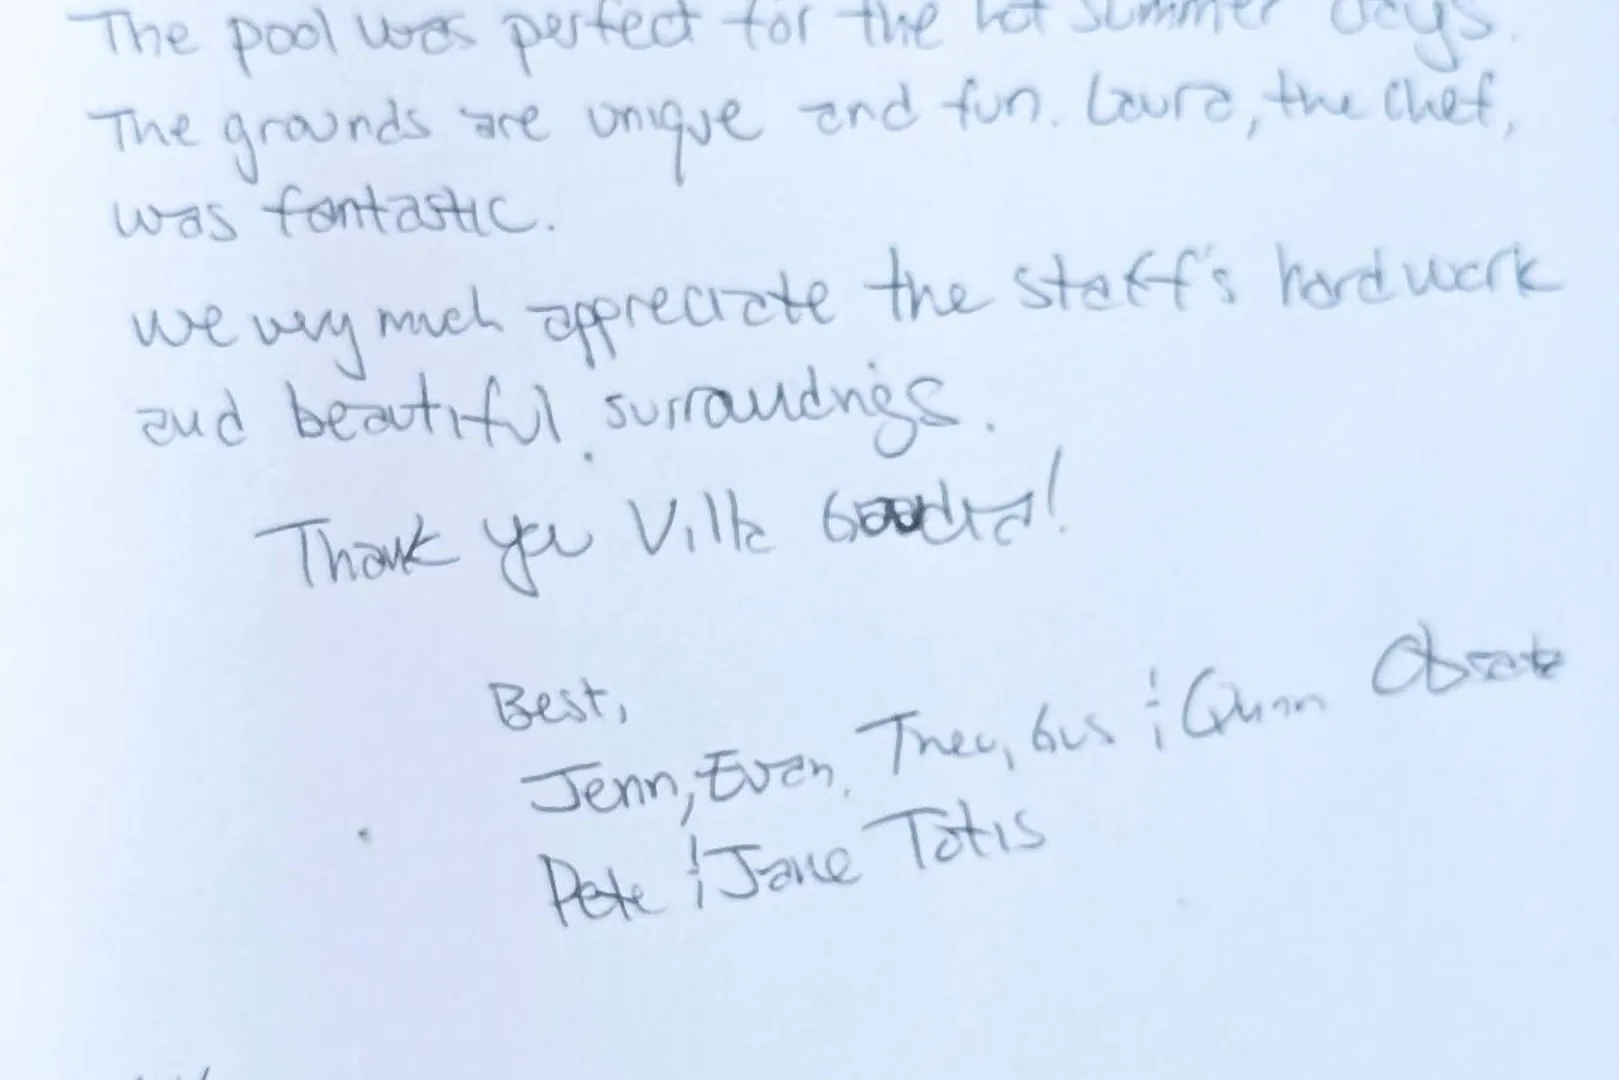 The pool was perfect for the hot summer days.
The grounds are unique and fun. Laura, the chef,
was fantastic.
we very much appreciate the staff's hard work
and beautiful surroundings.
Thank you Villa
Best,
Jenn, Evan, Theo, Gus & Quinn
Pete & Jane Totis